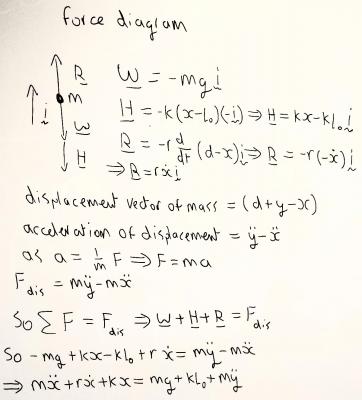 force diagram
R
m
i
W
H
W = -mg i
H = -k(x-l₀)(-i) ⇒ H = kx - kl₀ i
R = -r d/dt (d-x) i ⇒ R = -r(-ẋ) i
⇒ R = rẋ i
displacement vector of mass = (d+y-x)
acceleration of displacement = ÿ-ẍ
as a = 1/m F ⇒ F = ma
F_dis = mÿ - mẍ
So ∑ F = F_dis ⇒ W + H + R = F_dis
So -mg + kx - kl₀ + r ẋ = mÿ - mẍ
⇒ mẍ + rẋ + kx = mg + kl₀ + mÿ